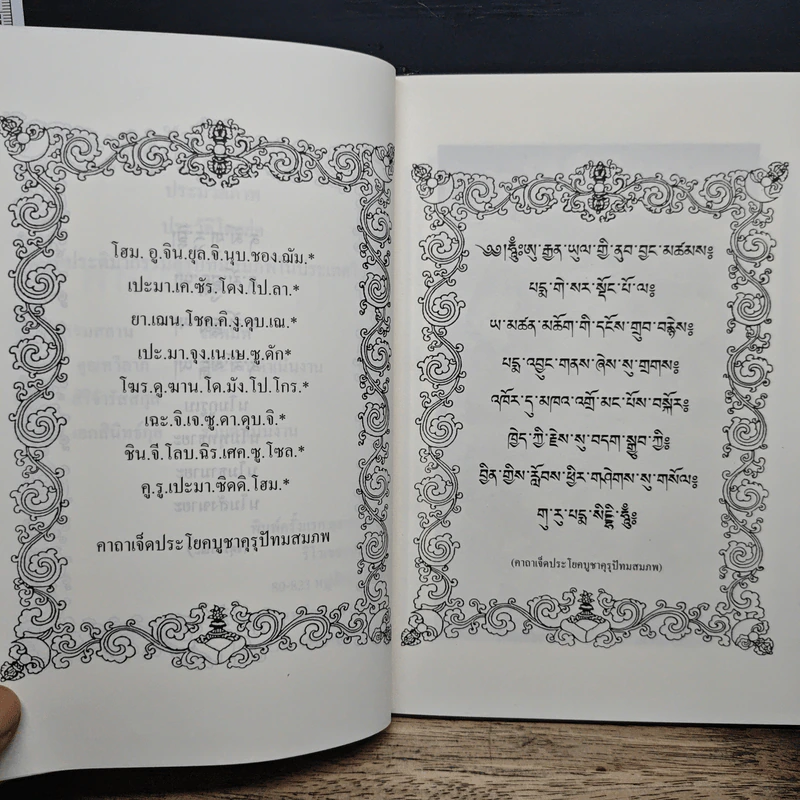 โฮม. อู.จิน.ยุล.จิ.นุบ.ชอง.ฌัม.*
เปะมา.เค.ซัร.โดง.โป.ลา.*
ยา.เฌน.โชค.คิ.งู.ดุบ.เณ.*
เปะ.มา.จุง.เน.เษ.ซู.ดัก*
โฆร.ดู.ฆาน.โด.มัง.โป.โกร.*
เฉะ.จิ.เจ.ซู.ดา.ดุบ.จิ.*
ชิน.จี.โลบ.ฉิร.เศค.ซู.โซล.*
คู.รู.เปะมา.ซิดดิ.โฮม.*
คาถาเจ็ดประโยคบูชาคุรุปัทมสมภพ
༄༅།ཧཱུྃ༔ཨུ་རྒྱན་ཡུལ་གྱི་ནུབ་བྱང་མཚམས༔
པདྨ་གེ་སར་སྡོང་པོ་ལ༔
ཡ་མཚན་མཆོག་གི་དངོས་གྲུབ་བརྙེས༔
པདྨ་འབྱུང་གནས་ཞེས་སུ་གྲགས༔
འཁོར་དུ་མཁའ་འགྲོ་མང་པོས་བསྐོར༔
ཁྱེད་ཀྱི་རྗེས་སུ་བདག་སྒྲུབ་ཀྱི༔
བྱིན་གྱིས་རློབས་ཕྱིར་གཤེགས་སུ་གསོལ༔
གུ་རུ་པདྨ་སིདྡྷི་ཧཱུྃ༔
(คาถาเจ็ดประโยคบูชาคุรุปัทมสมภพ)